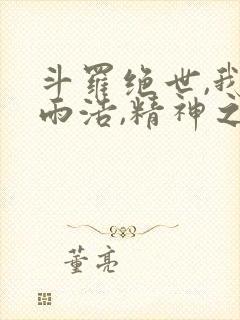 斗羅绝世,我
而活,精神之
董亮